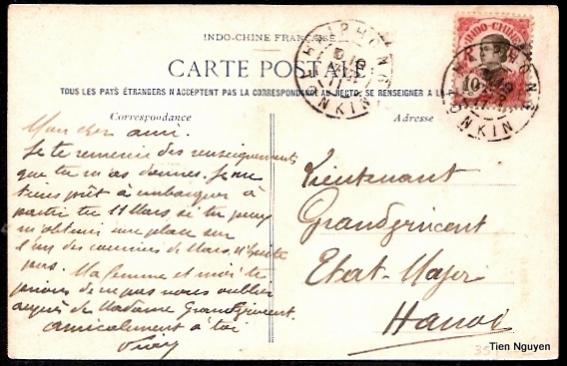 INDO-CHINE FRANÇAISE
CARTE POSTALE
TOUS LES PAYS ÉTRANGERS N'ACCEPTENT PAS LA CORRESPONDANCE AU RECTO, SE RENSEIGNER A LA
Correspondance
Adresse
HAIPHONG
TONKIN
INDO-CHINE
10
HAIPHONG
TONKIN
Mon cher ami.
Je te remercie des renseignements
que tu m'as donnés. Je me
tiens prêt à embarquer à
partir du 11 Mars si tu peux
m'obtenir une place sur
l'un des courriers de Mars, n'hésite
pas. Ma femme et moi te
prions de ne pas nous oublier
auprès de Madame Grandjincent.
amicalement à toi
Lieutenant
Etat-Major
Hanoi
Tien Nguyen